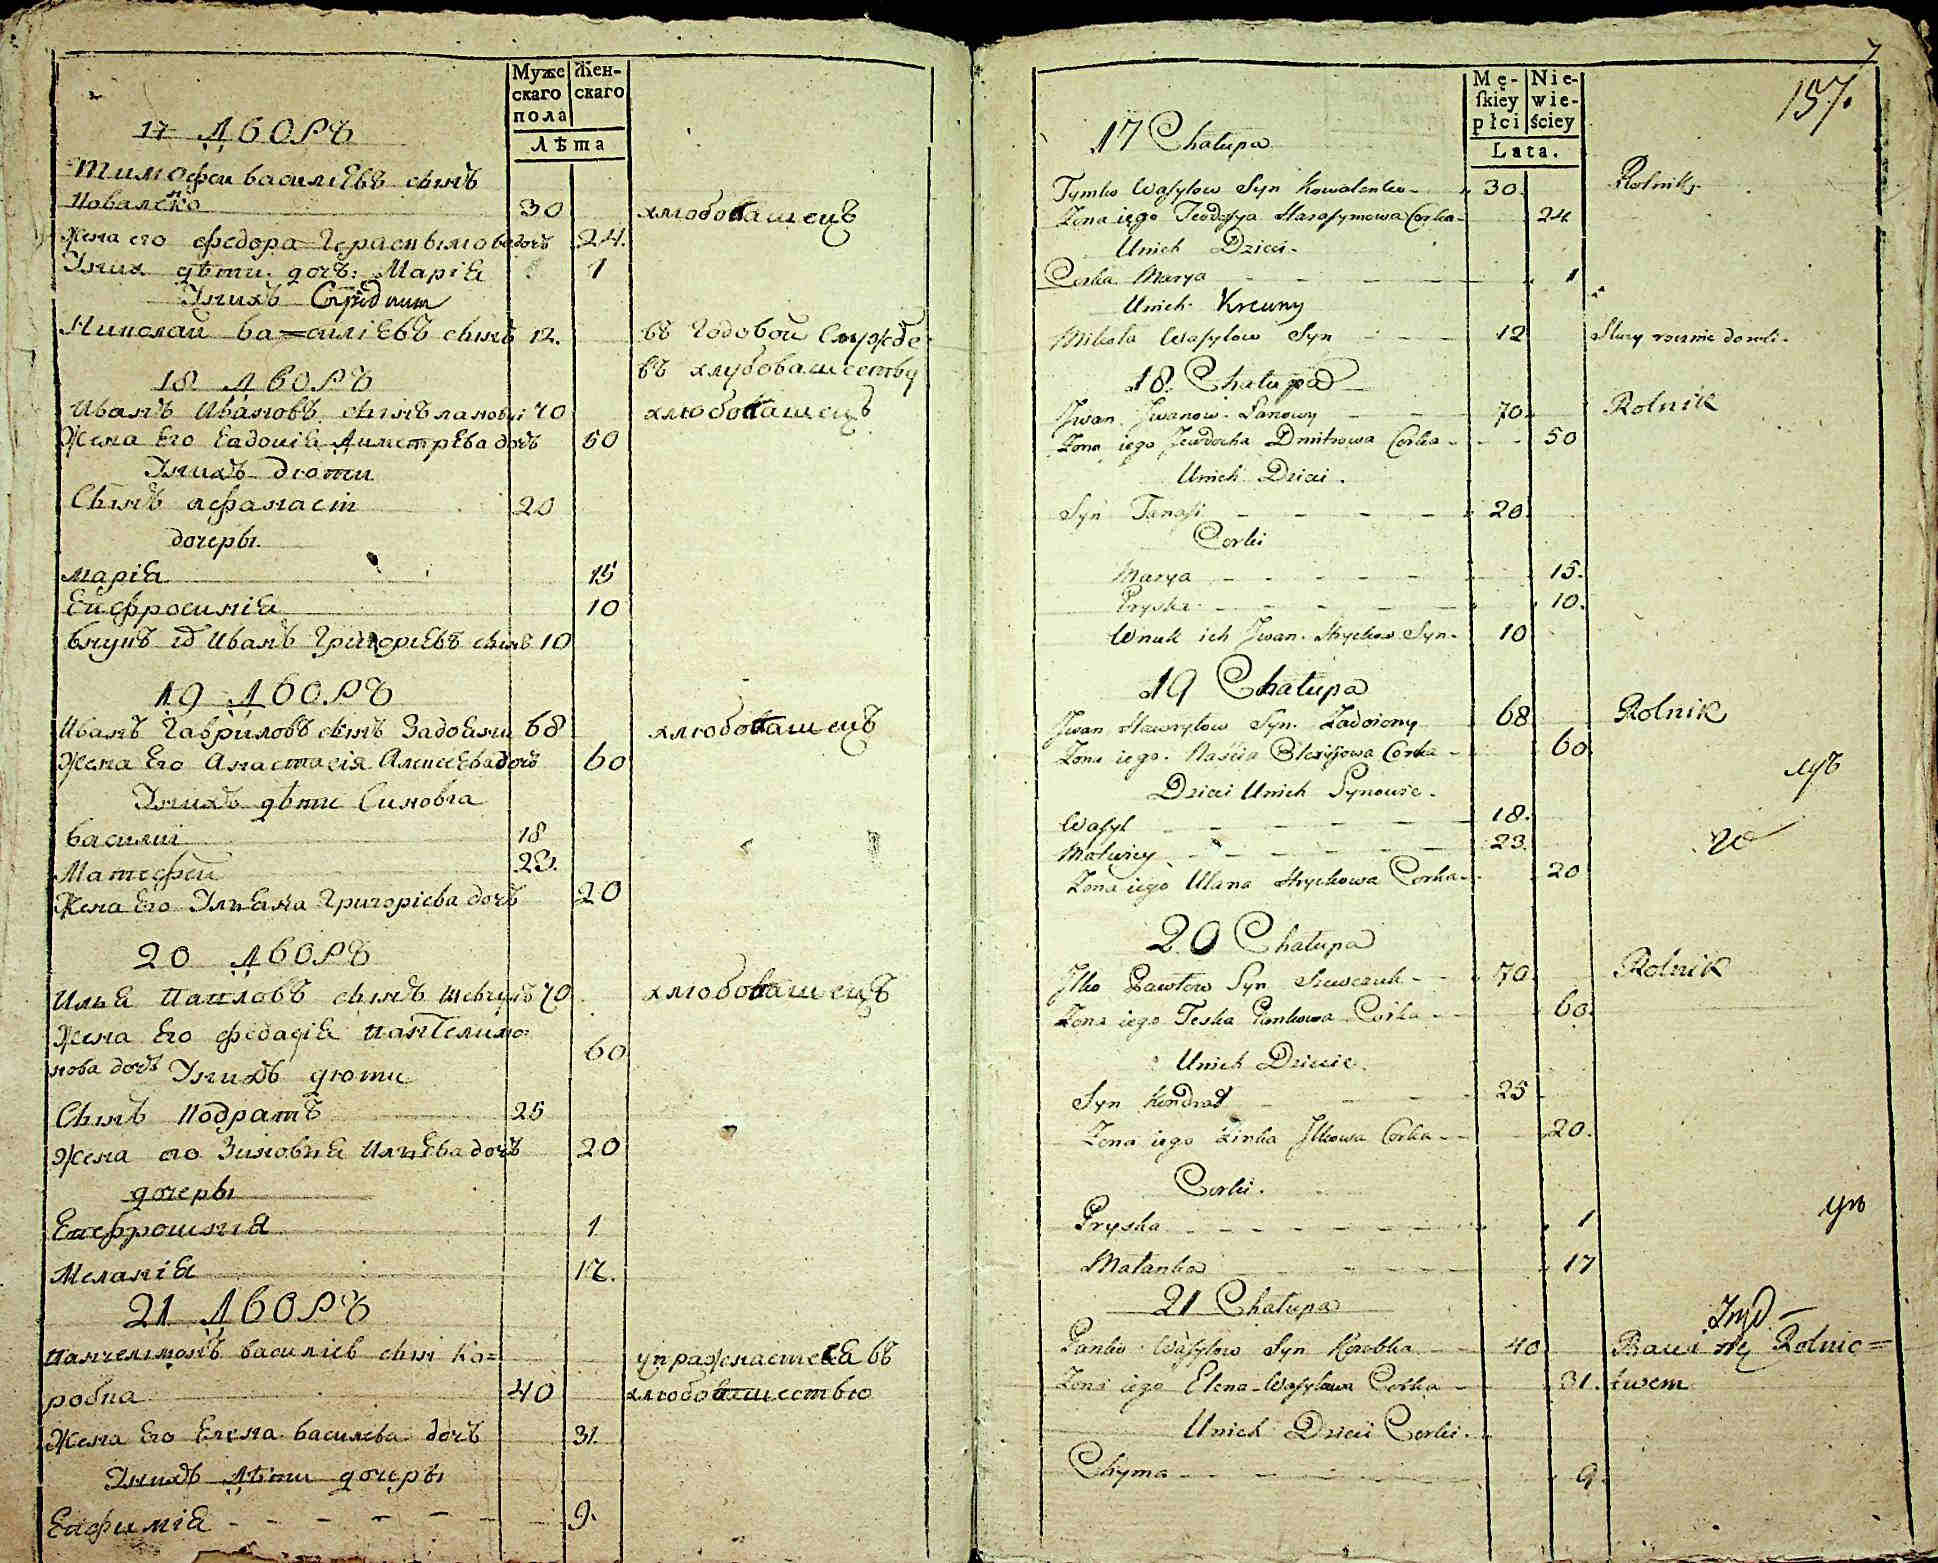 Муже Жен-
скаго скаго
пола
Лѣта
17 ДВОРЪ
Тимофеи василіевъ сынъ
Ковалѣко 30 хлюбопашецъ
Жена его федора Герасимова дочь 24.
Унихъ дѣти дочъ: Марія 1
Унихъ
Николай василіевъ сынъ 12. въ годовой службе
въ хлубопашеству
18 ДВОРЪ
Иванъ Ивановъ сынъ лановы 70 хлюбопашецъ
Жена Его Евдокія Димитрева дочъ 50
Унихъ дюти
Сынъ Афанасіи 20
дочеры.
марія 15
Ейефросинія 10
внукъ Иванъ Григоріевъ сынъ 10
19 ДВОРЪ
Иванъ Гавриловъ сынъ Задояны 68 хлюбопашецъ
Жена Его Анастасія Алексеева дочъ 60
Унихъ дѣти Синовѣа
василии 18
Матефеи 23.
Жена Его Улъеана Григоріева дочъ 20
20 ДВОРЪ
Илъя Павловъ сынъ шевчукъ 70 хлюбопашецъ
Жена Его федасія пантелимо=
нова дочъ 60
Унихъ дюти
Сынъ Кодратъ 25
Жена его Зиновия Илъева дочъ 20
дочеры
Евфрошиния 1
Меланія 17.
21 ДВОРЪ
пантелимонъ василіев сын Ко=
робка 40
упражнается въ
хлюбопашествью
Жена Его Елена василева дочъ 31.
Унихъ дѣти дочеры
Евфимія 9.
7
157.
Mę- Nie-
ſkiey wie-
płci ściey
Lata.
17 Chałupa
Tymko Wasylow Syn Kowalenko 30. Rolnik
Zona iego Teodozya Harasymowa Corka 24
Unich Dzieci
Corka Marya 1
Unich Krewny
Mikoła Wasylow Syn 12 Służy rocznie
18. Chałupa
Jwan Jwanow Łanowy 70 Rolnik
Zona iego Jewdocha Dmitrowa Corka 50
Unich Dzieci.
Syn Tanasi 20.
Corki
Marya 15.
Pryska 10.
Wnuk ich Jwan Hryckow Syn 10
19 Chałupa
Jwan Hawryłow Syn Zadoiony 68 Rolnik
Zona iego Naścia Olexijowa Corka 60
Dzieci Unich Synowie.
Wasyl 18.
Matwiey 23.
Zona iego Ulana Hryckowa Corka 20
20 Chałupa
Jlko Pawłow Syn Szewczuk 70. Rolnik
Zona iego Teska Pankowa Corka 60.
Unich Dziecie.
Syn Kondrat 25
Zona iego Zinka Jlkowa Corka 20.
Corki.
Pryska 1
Małanka 17
21 Chałupa
Panko Wasylow Syn Korobka 40 Bawi się Rolnic=
Zona iego Elena Wasylowa Corka 31. twem
Unich Dzieci Corki.
Chyma 9.